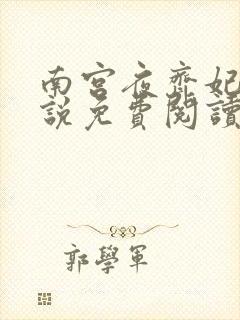 南宫夜齊妃
說免費閱讀
郭學軍